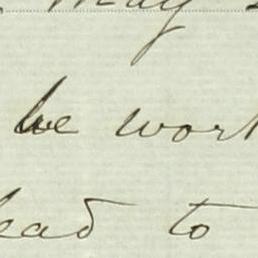 May
be work
lead to